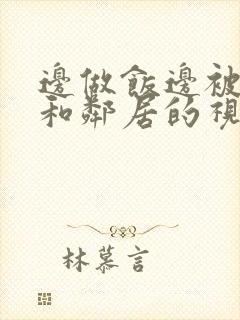 邊做飯邊被
和鄰居的視
林慕言